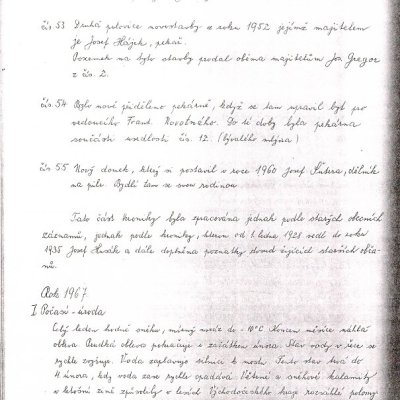 čís 53 Druhá polovice novostavby z roku 1952 jejímž majitelem
je Josef Hájek, pekař
Pozemek na tyto stavby prodal oběma majitelům Jos Gregor
z čs. 2.
čís 54 Bylo nově přiděleno pekárně, když se tam upravil byt pro
vedoucího Frant. Novotného. Do té doby byla pekárna
součástí usedlosti čís. 12. (bývalého mlýna)
čís 55 Nový domek, který si postavil v roce 1960 Josef dělník
na pile. Bydlí tam se svou rodinou
Tato část kroniky byla zpracována jednak podle starých obecních
záznamů, jednak podle kroniky, kterou od 1. ledna 1928 vedl do roku
1935 Josef Husák a dále doplněna poznatky dosud žijících starších obča-
nů.
Rok 1967.
I Počasí - úroda
Celý leden hodně sněhu, mírný mráz do -10°C Koncem měsíce náhlá
obleva Prudká obleva pokračuje i začátkem února. Stav vody v řece se
rychle zvyšuje. Voda zaplavuje silnici k mostu. Tento stav trvá do
4 února, kdy voda zase rychle opadává. Větrné a sněhové kalamity
v letošní zimě způsobily v lesích Východočeského kraje rozsáhlé polomy